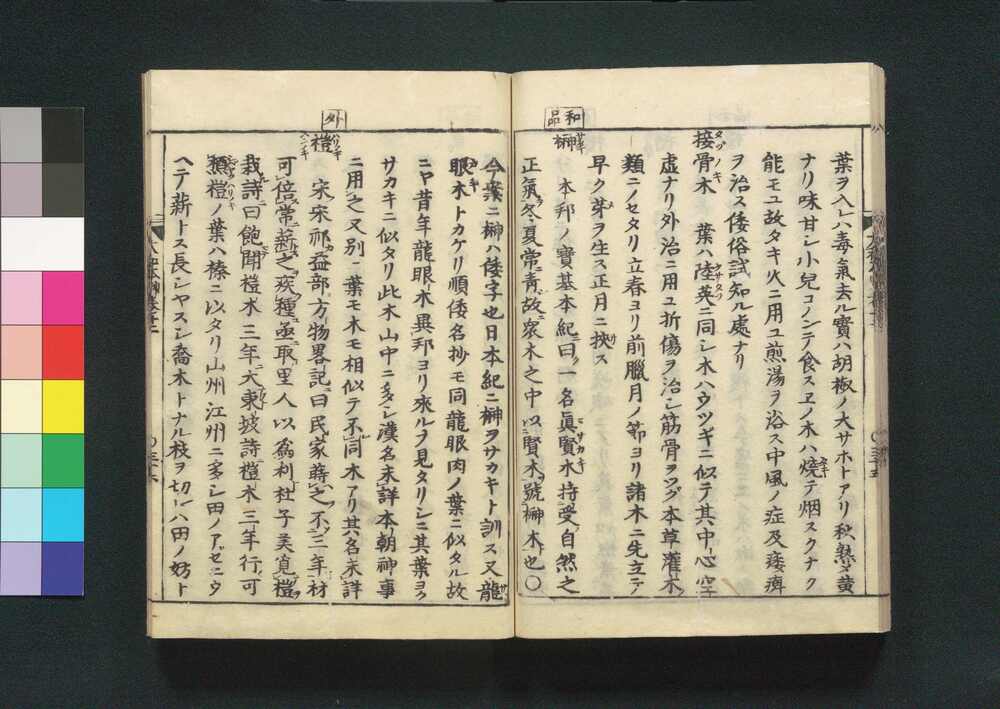 葉ヲ入レハ毒氣去ル實ハ胡椒ノ大サホトアリ秋熟〆黄
ナリ味甘シ小兒コノンテ食スヱノ木ハ燒テ烟スクナク
能モユ故タキ火ニ用ユ煎湯ヲ浴ス中風ノ症及痿痹
ヲ治ス倭俗試知ル處ナリ
接骨木 葉ハ陸英ニ同シ木ハウツギニ似テ其中心空
虚ナリ外治ニ用ユ折傷ヲ治シ筋骨ヲツグ本草灌木
類ニノセタリ立春ヨリ前臘月ノ節ヨリ諸木ニ先立テ
早ク芽ヲ生ス正月ニ挾ス
和品
榊
本邦ノ寶基本紀ニ曰一名眞賢木持受自然之
正氣冬夏常青故衆木之中以賢木號榊木也〇
今案ニ榊ハ倭字也日本紀ニ榊ヲサカキト訓ス又龍
眼木トカケリ順倭名抄モ同龍眼肉ノ葉ニ似タル故
ニヤ昔年龍眼木異邦ヨリ來ルヲ見タリシニ其葉ヨク
サカキニ似タリ此木山中ニ多シ漢名未詳本朝神事
ニ用之又別ニ葉モ木モ相似テ不同木アリ其名未詳
外
榿 宋宋祁益部方物畧記曰民家蒔之不三年材
可倍常薪之疾種亟取里人以爲利杜子美覓榿
栽詩曰飽聞榿木三年大東坡詩榿木三年行可
槱榿ノ葉ハ榛ニ以タリ山州江州ニ多シ田ノアゼニウ
ヘテ薪トス長シヤスシ喬木トナル枝ヲ切レハ田ノ妨ト